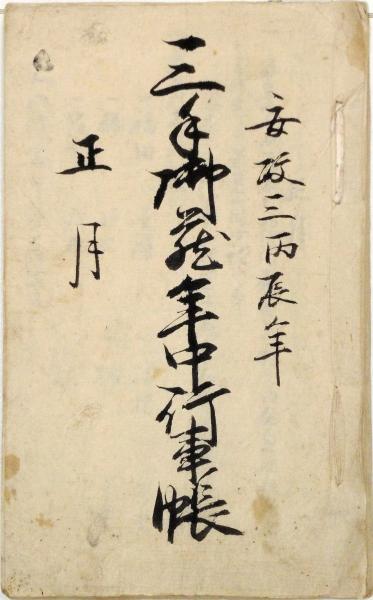 安政三丙辰年
三手御蔵年中行事帳
正月